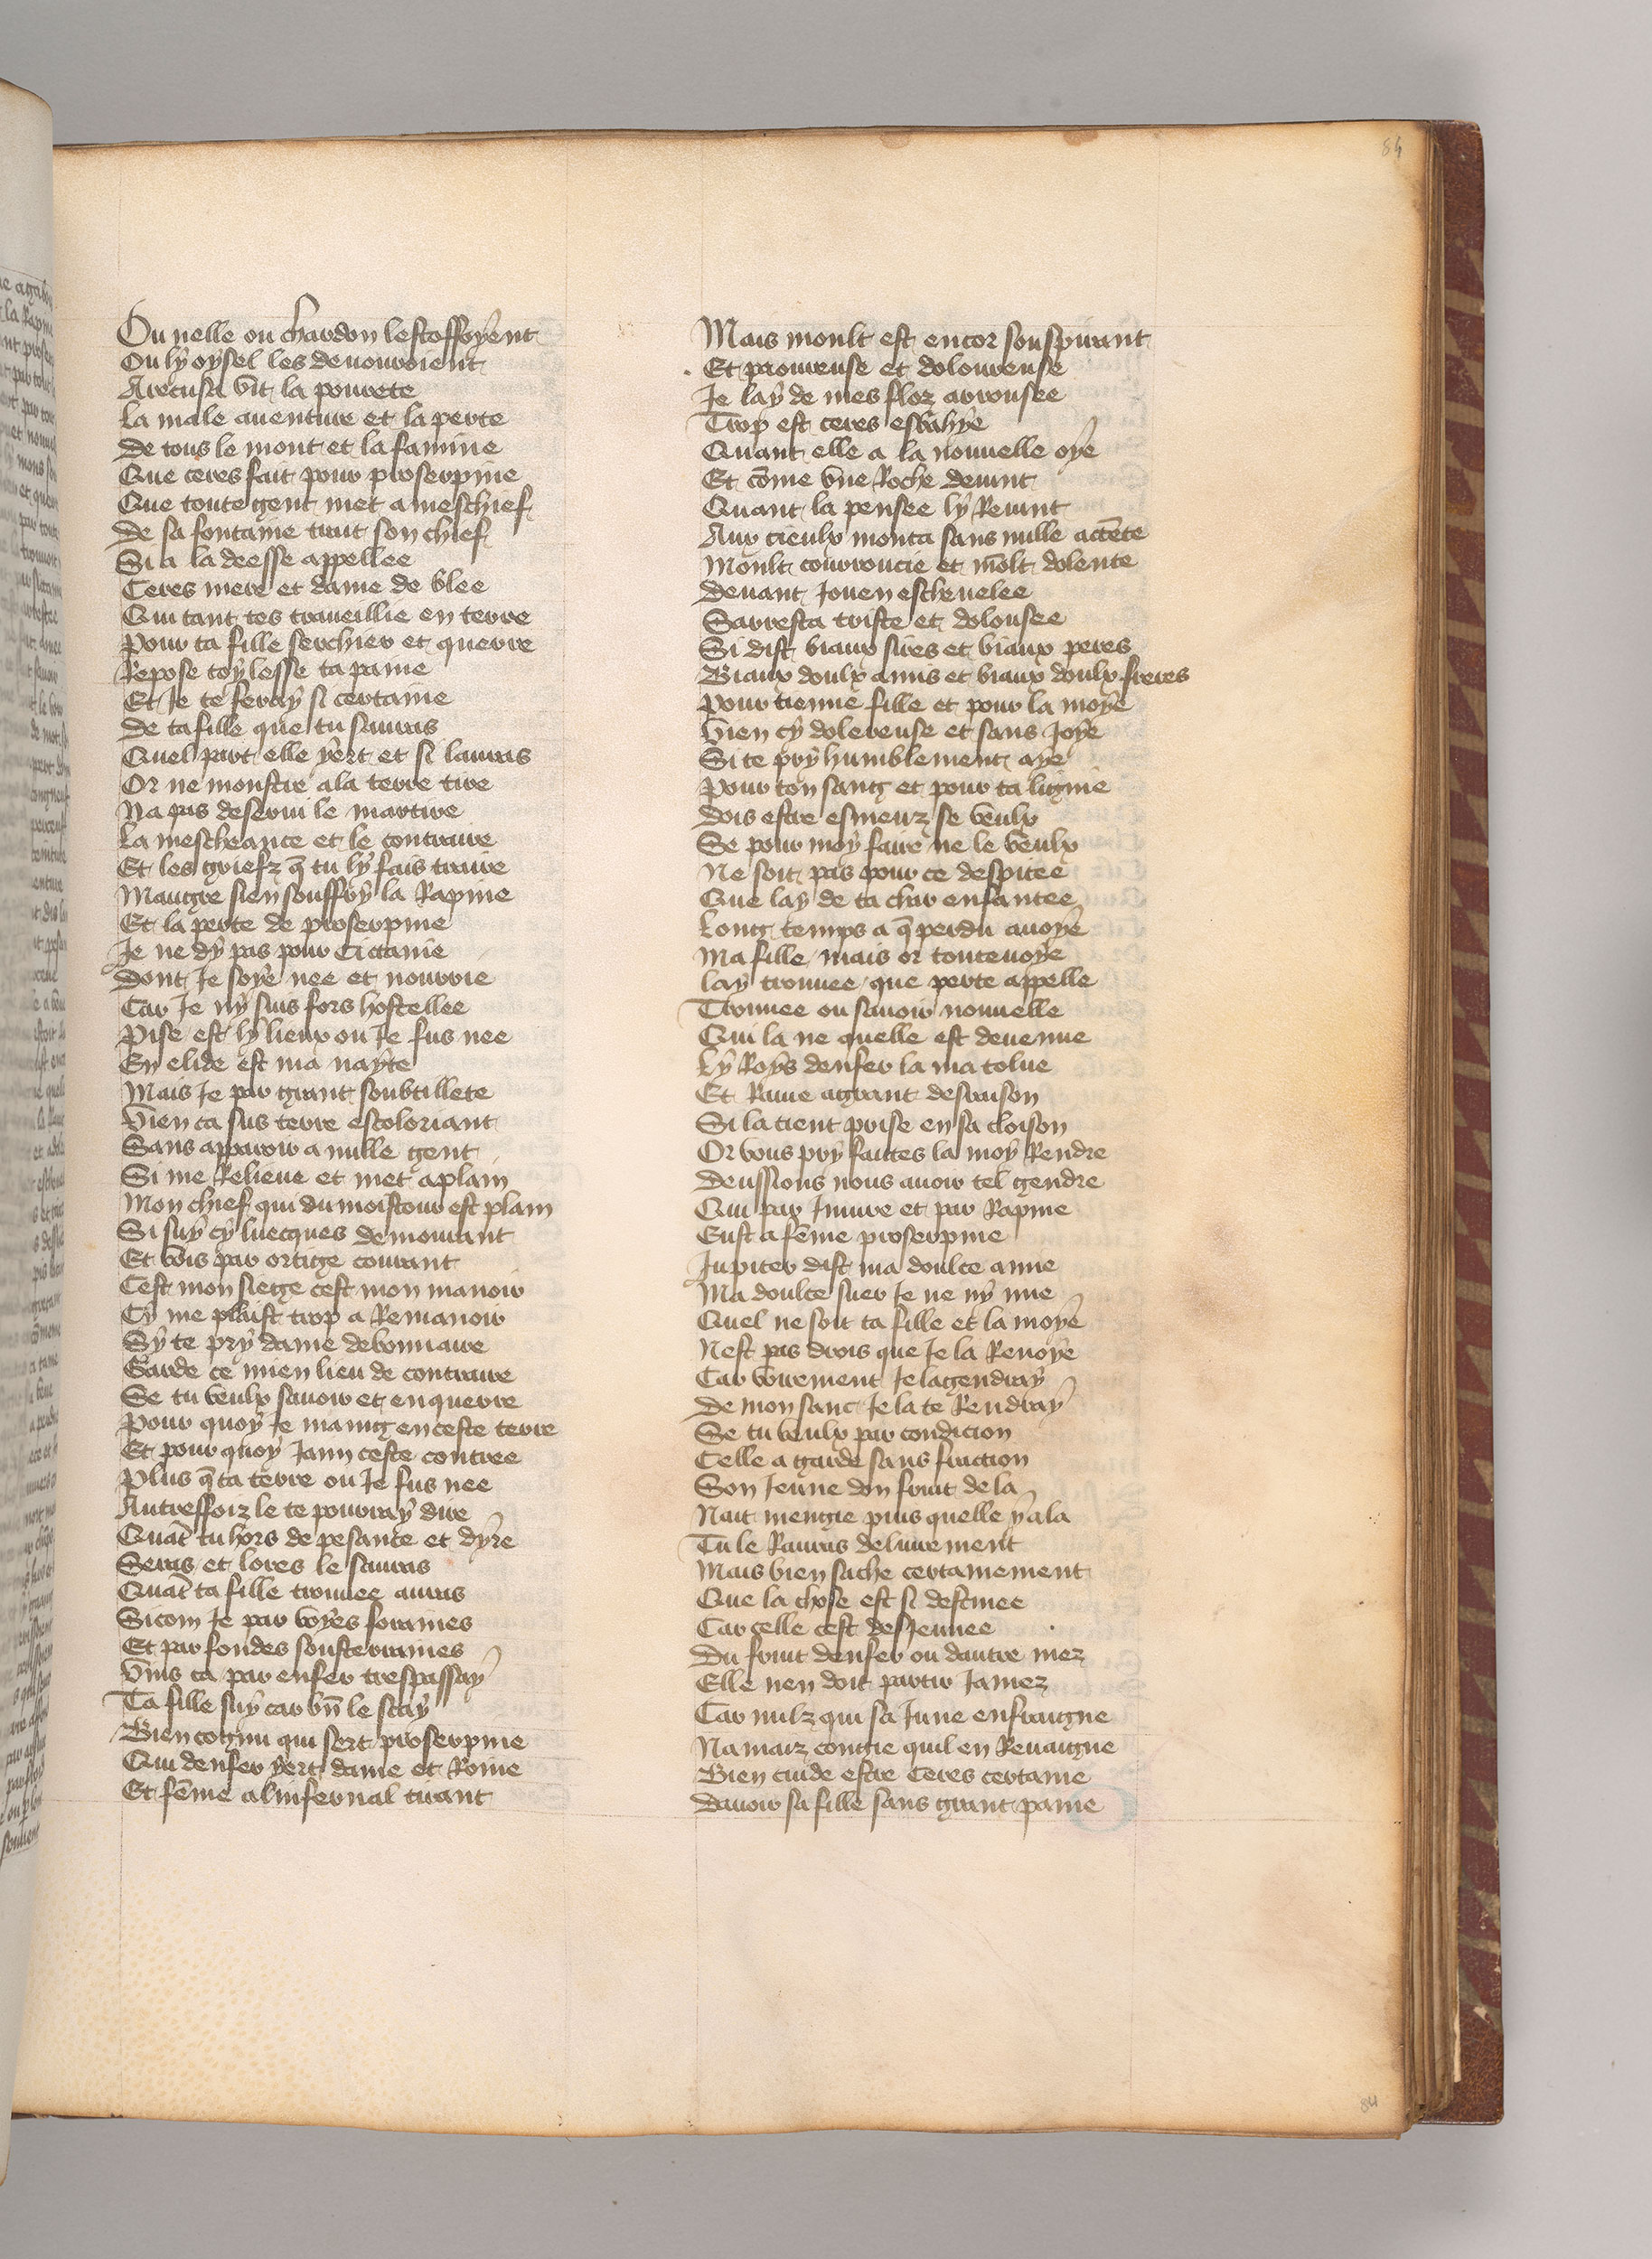 84
Ou nelle ou chardon lestoffoyent
Ou ly oysel les devouroient
Aretusa vit la pourete
La male aventure et la perte
De tous le mont et la famine
Que ceres fait pour proserpine
Que toute gent met a meschief
De sa fontaine trait son chief
Si a la deesse appellee
Ceres mere et dame de blee
Qui tant tes traveillie en terre
Pour ta fille serchier et querre
Repose toy lesse ta paine
Et Je te feray si certaine
De ta fille que tu sauras
Quel part elle yert et si lauras
Or ne monstre a la terre tire
Na pas deservi le martire
La mescheance et le contraire
Et les griefz q̃ tu ly fais traire
Maugre sien souffry la Rapine
Et la perte de proserpine
Je ne dy pas pour Cicanie
Dont Je soye nee et nourrie
Car Je ny suis fors hostellee
Pise est ly lieux ou Je fus nee
En elide est ma nayte
Mais Je par grant soubtillete
Vien ca sus terre escoloriant
Sans apparoir a nulle gent
Si me Relieve et met a plain
Mon chief qui du moistour est plain
Si suy cy luecques demourant
Et vois par ortige courant
Cest mon siege cest mon manoir
Cy me plaist trop a Remanoir
Sy te pry dame debonnaire
Garde ce mien lieu de contraire
Se tu veulx savoir et enquerre
Pour quoy Je maing en ceste terre
Et pour quoy Jaim ceste contree
Plus q̃ ta terre ou Je fus nee
Autreffoiz le te pourray dire
Quãt tu hors de pesance et dyre
Seras et lores le sauras
Quãt ta fille trouvee auras
Si com Je par voyes foraines
Et par fondes sousterraines
Vins ca par enfer trespassay
Ta fille suy car bñ le scay
Bien cognu qui sert proserpine
Qui denfer yert dame et Roine
Et fẽme a linfernal tirant
Mais moult est encor souspirant
Et paoureuse et doloureuse
Je lay de mes floz arrousee
Trop est ceres esbahye
Quant elle a la nouvelle oye
Et cõme vne Roche devint
Quant la pensee ly Revint
Aux cieulx monta sans nulle actẽte
Moult courroucie et mõlt dolente
Devant Joven eschevelee
Sarresta triste et dolousee
Si dist biaux sires et biaux peres
Biaux doulx amis et biaux doulx freres
Pour tienne fille et pour la moye
Vien cy dolereuse et sans Joye
Si te pry humblement aye
Pour ton sang et pour ta lignie
Dois estre esmeuz se veulx
Se pour moy faire ne le veulx
Ne soit pas pour ce despitee
Que lay de ta char enfantee
Long temps a q̃ perdu avoye
Ma fille / mais or toutevoye
Lay trouvee / que perte appelle
Trouvee ou savoir nouvelle
Qui la ne quelle est devenue
Ly Roys denfer la ma tolue
Et Ravie a grant desraison
Si la tient prise en sa cloison
Or vous pry faictes la moy Rendre
Deussions nous avoir tel gendre
Qui par Iniure et par Rapine
Eust a fẽme proserpine
Jupiter dist ma doulce amie
Ma doulce suer Je ne ny mie
Quel ne soit ta fille et la moye
Nest pas drois que Je la Renoye
Car voirement Je lagendray
De mon sanc Je la te Rendray
Se tu veulx par condicion
Celle a garde sans fraction
Son Jeune don fruit de la
Nait mengie puis quelle y ala
Tu le Rauras delivrement
Mais bien sache certainement
Que la chose est si destinee
Car celle cest desjeunee
Du fruit denfer ou dautre mez
Elle nen doit partir Jamez
Car nulz qui sa Jeune enfraigne
Na maiz congie quil en Revaigne
Bien cuide estre Ceres certaine
Davoir sa fille sans grant paine
84